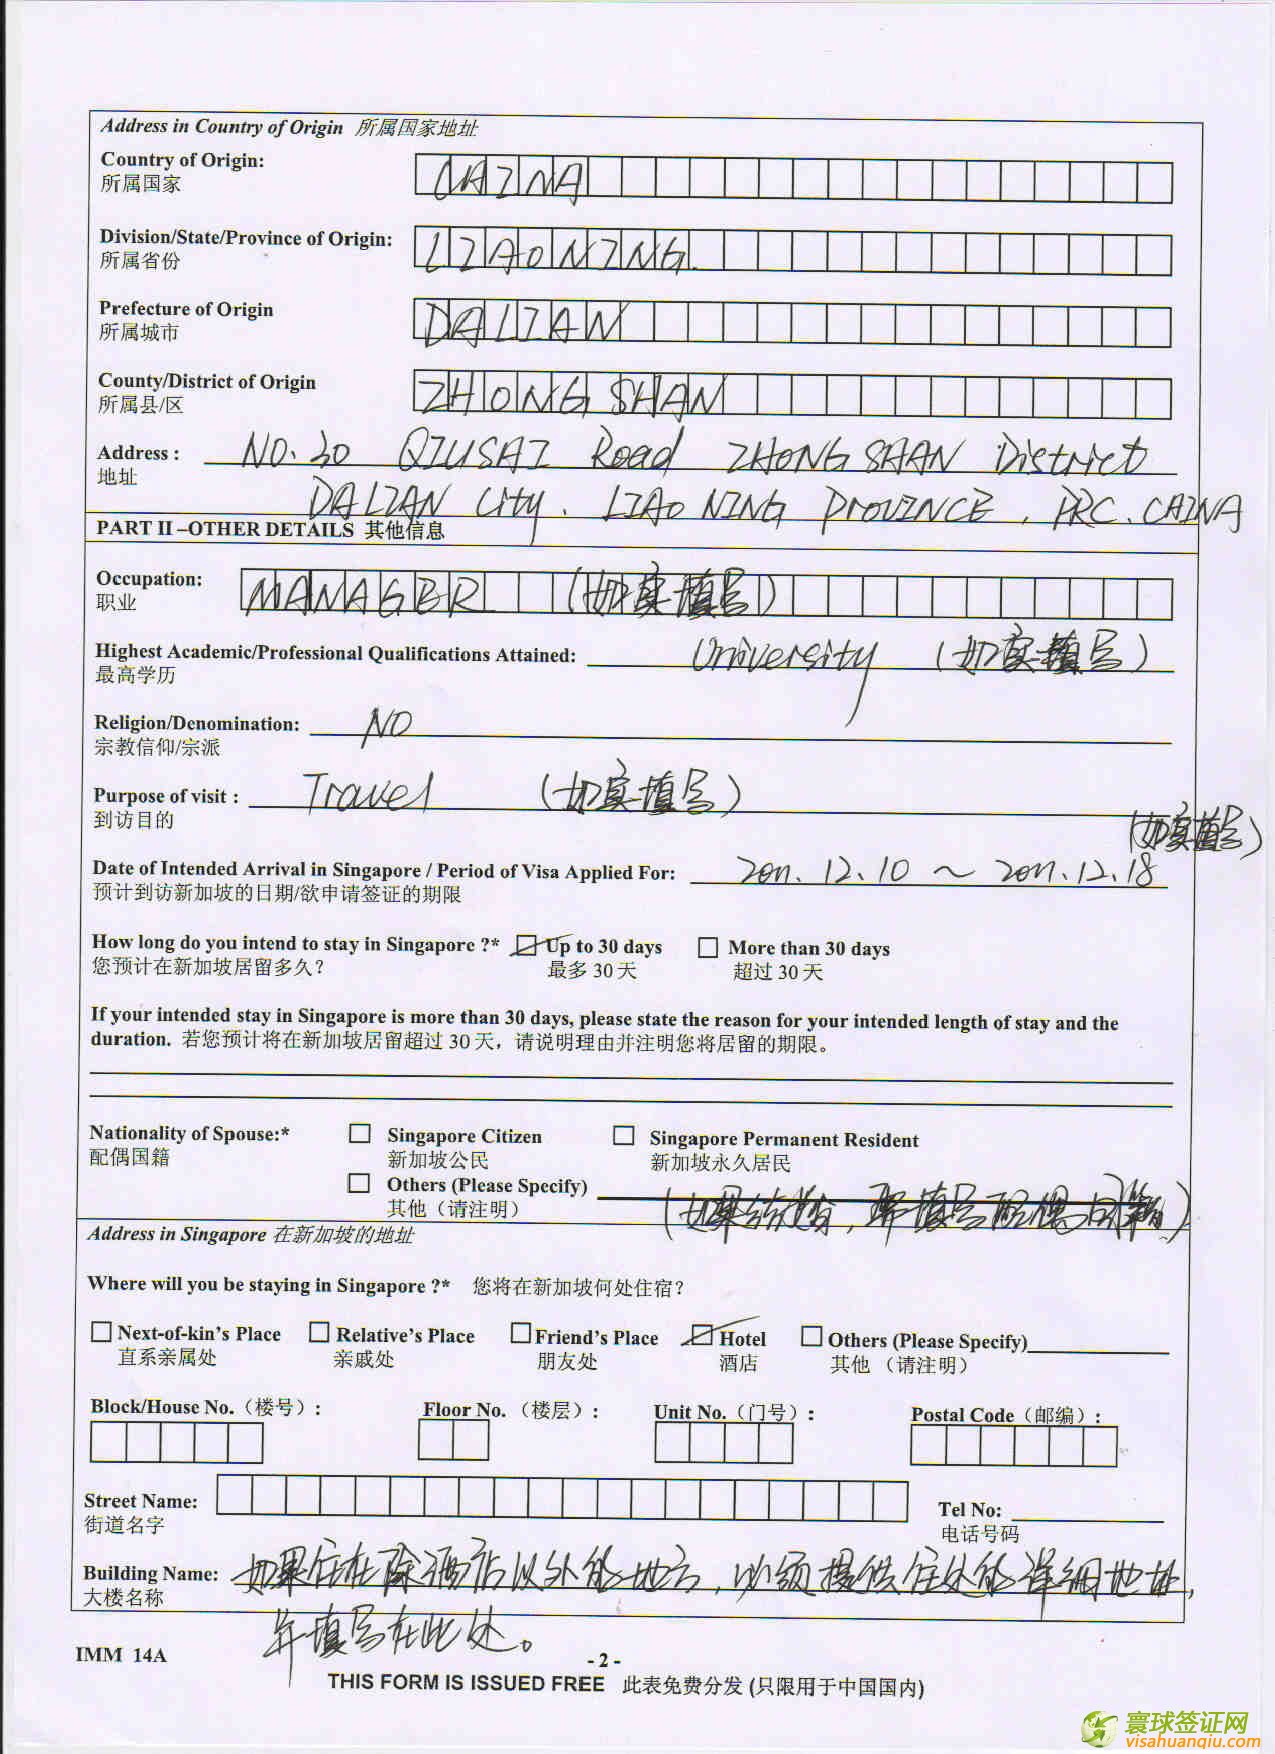 Address in Country of Origin 所属国家地址
Country of Origin: CHINA
所属国家
Division/State/Province of Origin: LIAONING
所属省份
Prefecture of Origin DALIAN
所属城市
County/District of Origin ZHONG SHAN
所属县/区
Address : NO.30 QIUSAI Road ZHONG SHAN District
地址
DALIAN City. LIAO NING PROVINCE, PRC. CHINA
PART II –OTHER DETAILS 其他信息
Occupation: MANAGER (如实填写)
职业
Highest Academic/Professional Qualifications Attained: University (如实填写)
最高学历
Religion/Denomination: NO
宗教信仰/宗派
Purpose of visit : Travel (如实填写)
到访目的
(如实填写)
Date of Intended Arrival in Singapore / Period of Visa Applied For: 2011.12.10 ~ 2011.12.18
预计到访新加坡的日期/欲申请签证的期限
How long do you intend to stay in Singapore ?* Up to 30 days More than 30 days
您预计在新加坡居留多久? 最多 30 天 超过 30 天
If your intended stay in Singapore is more than 30 days, please state the reason for your intended length of stay and the
duration. 若您预计将在新加坡居留超过 30 天，请说明理由并注明您将居留的期限。
Nationality of Spouse:* Singapore Citizen Singapore Permanent Resident
配偶国籍 新加坡公民 新加坡永久居民
Others (Please Specify)
其他（请注明） (如果结婚, 填写配偶国籍)
Address in Singapore 在新加坡的地址
Where will you be staying in Singapore ?* 您将在新加坡何处住宿?
Next-of-kin's Place Relative's Place Friend's Place Hotel Others (Please Specify)
直系亲属处 亲戚处 朋友处 酒店 其他 （请注明）
Block/House No.（楼号）: Floor No. （楼层）: Unit No.（门号）: Postal Code（邮编）:
Street Name: Tel No:
街道名字 电话号码
Building Name: 如果住在除酒店以外的地方, 必须提供住处的详细地址,
大楼名称
并填写在此处。
IMM 14A
- 2 -
THIS FORM IS ISSUED FREE 此表免费分发 (只限用于中国国内)
寰球签证网
visahuanqiu.com